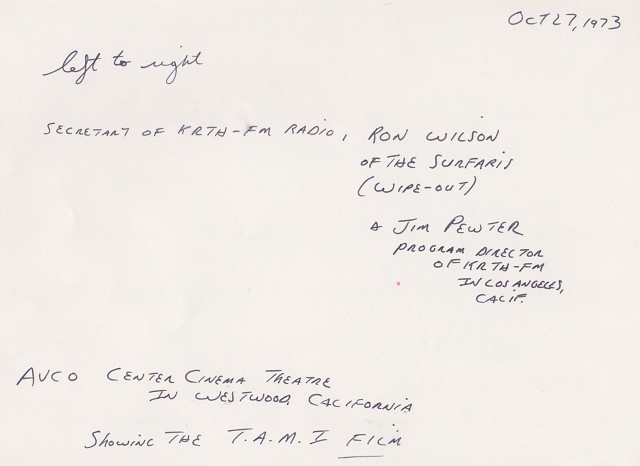 OCT 27, 1973
left to right
SECRETARY OF KRTH-FM RADIO, RON WILSON
OF THE SURFARIS
(WIPE-OUT)
& JIM PEWTER
PROGRAM DIRECTOR
OF KRTH-FM
IN LOS ANGELES,
CALIF.
AVCO CENTER CINEMA THEATRE
IN WESTWOOD, CALIFORNIA
SHOWING THE T.A.M.I FILM